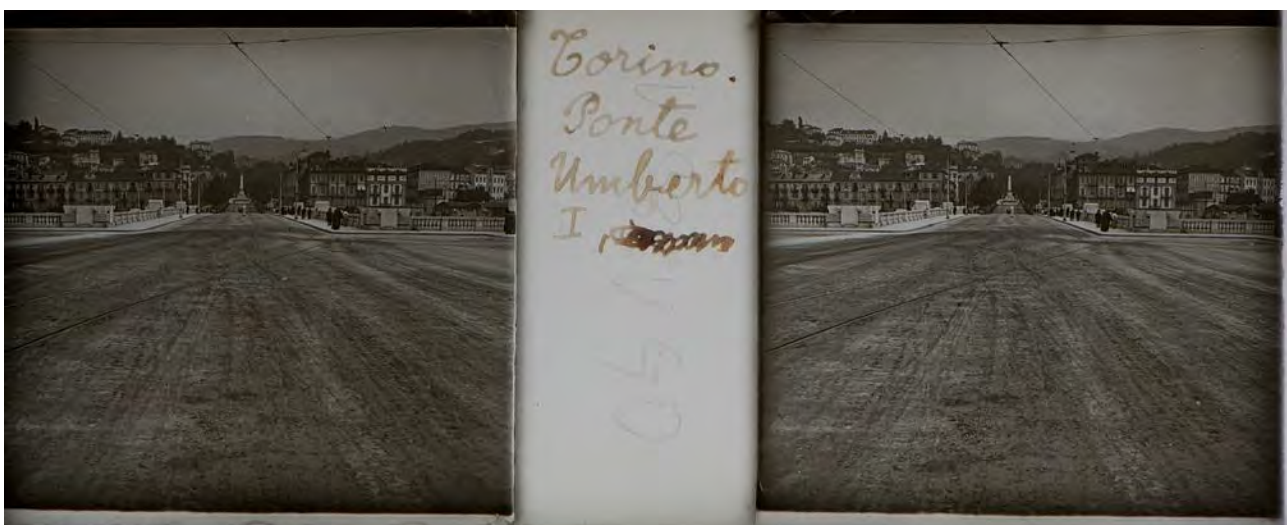 Torino.
Ponte
Umberto
I